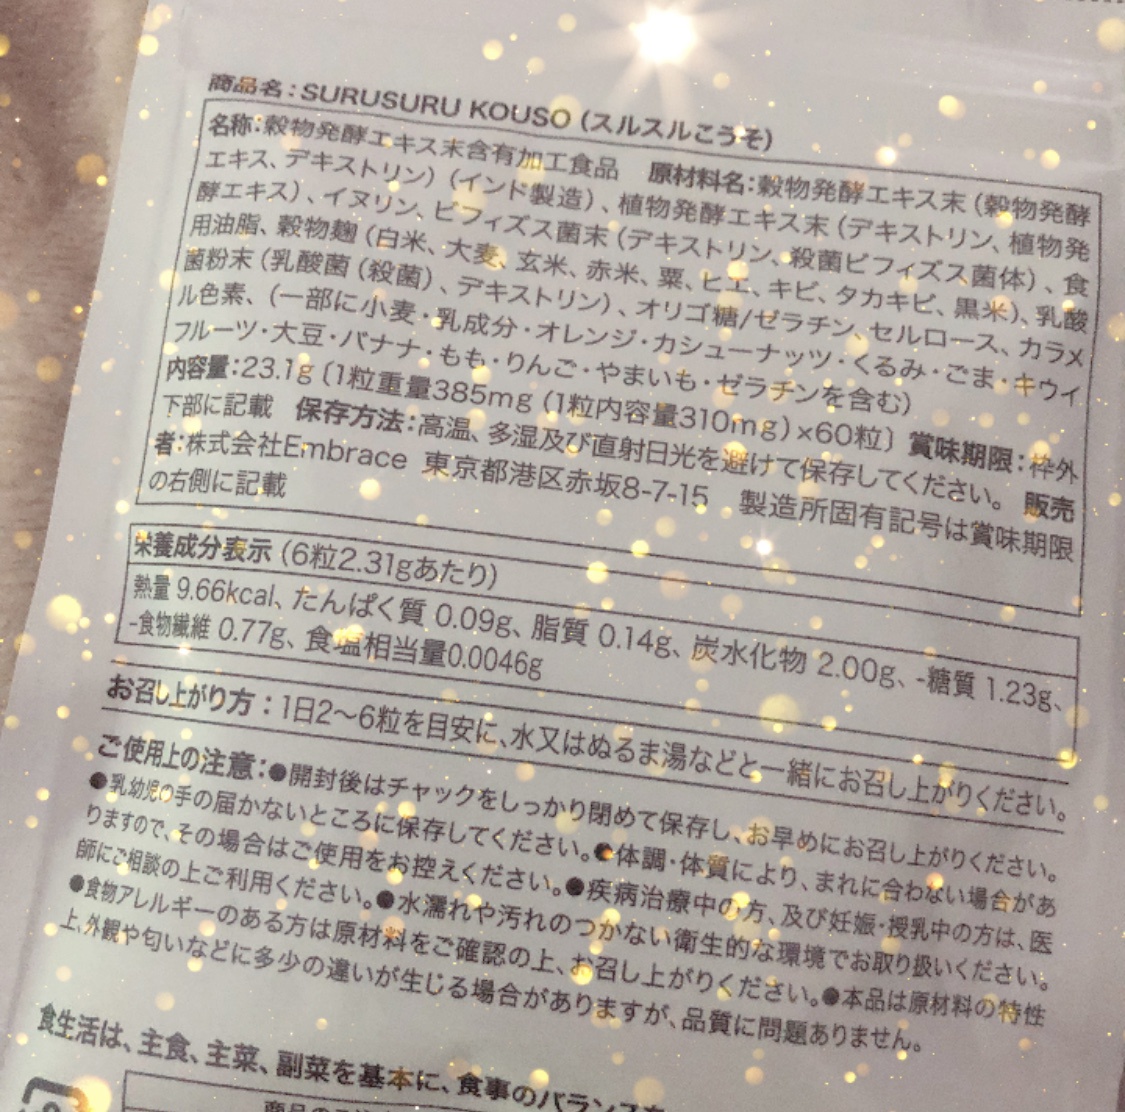 商品名：SURUSURU KOUSO（スルスルこうそ）
名称：穀物発酵エキス末含有加工食品　原材料名：穀物発酵エキス末（穀物発酵
エキス、デキストリン）（インド製造）、植物発酵エキス末（デキストリン、植物発
酵エキス）、イヌリン、ビフィズス菌末（デキストリン、殺菌ビフィズス菌体）、食
用油脂、穀物麹（白米、大麦、玄米、赤米、粟、ヒエ、キビ、タカキビ、黒米）、乳酸
菌粉末（乳酸菌（殺菌）、デキストリン）、オリゴ糖/ゼラチン、セルロース、カラメ
ル色素、（一部に小麦・乳成分・オレンジ・カシューナッツ・くるみ・ごま・キウイ
フルーツ・大豆・バナナ・もも・りんご・やまいも・ゼラチンを含む）
内容量：23.1g〔1粒重量385mg（1粒内容量310mg）×60粒〕賞味期限：枠外
下部に記載　保存方法：高温、多湿及び直射日光を避けて保存してください。　販売
者：株式会社Embrace　東京都港区赤坂8-7-15　製造所固有記号は賞味期限
の右側に記載
栄養成分表示（6粒2.31gあたり）
熱量 9.66kcal、たんぱく質 0.09g、脂質 0.14g、炭水化物 2.00g、-糖質 1.23g、
-食物繊維 0.77g、食塩相当量0.0046g
お召し上がり方：1日2〜6粒を目安に、水又はぬるま湯などと一緒にお召し上がりください。
ご使用上の注意：●開封後はチャックをしっかり閉めて保存し、お早めにお召し上がりください。
●乳幼児の手の届かないところに保存してください。●体調・体質により、まれに合わない場合があ
りますので、その場合はご使用をお控えください。●疾病治療中の方、及び妊娠・授乳中の方は、医
師にご相談の上ご利用ください。●水濡れや汚れのつかない衛生的な環境でお取り扱いください。
●食物アレルギーのある方は原材料をご確認の上、お召し上がりください。●本品は原材料の特性
上、外観や匂いなどに多少の違いが生じる場合がありますが、品質に問題ありません。
食生活は、主食、主菜、副菜を基本に、食事のバランスを